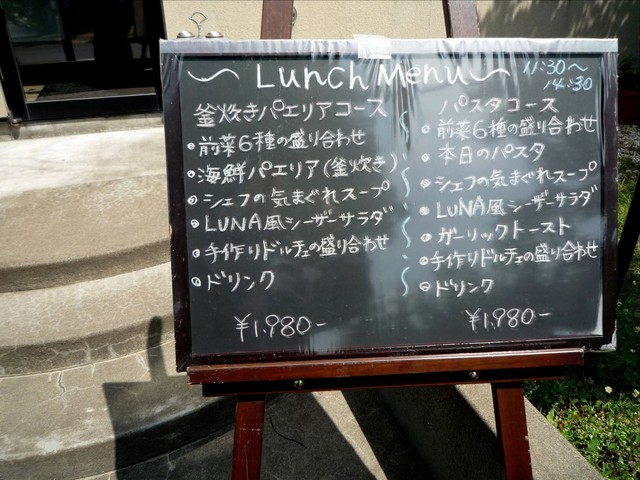 〜 Lunch Menu 〜
11:30〜
14:30
釜炊きパエリアコース
・前菜6種の盛り合わせ
・海鮮パエリア(釜炊き)
・シェフの気まぐれスープ
・LUNA風シーザーサラダ
・手作りドルチェの盛り合わせ
・ドリンク
¥1,980-
パスタコース
・前菜6種の盛り合わせ
・本日のパスタ
・シェフの気まぐれスープ
・LUNA風シーザーサラダ
・ガーリックトースト
・手作りドルチェの盛り合わせ
・ドリンク
¥1,980-